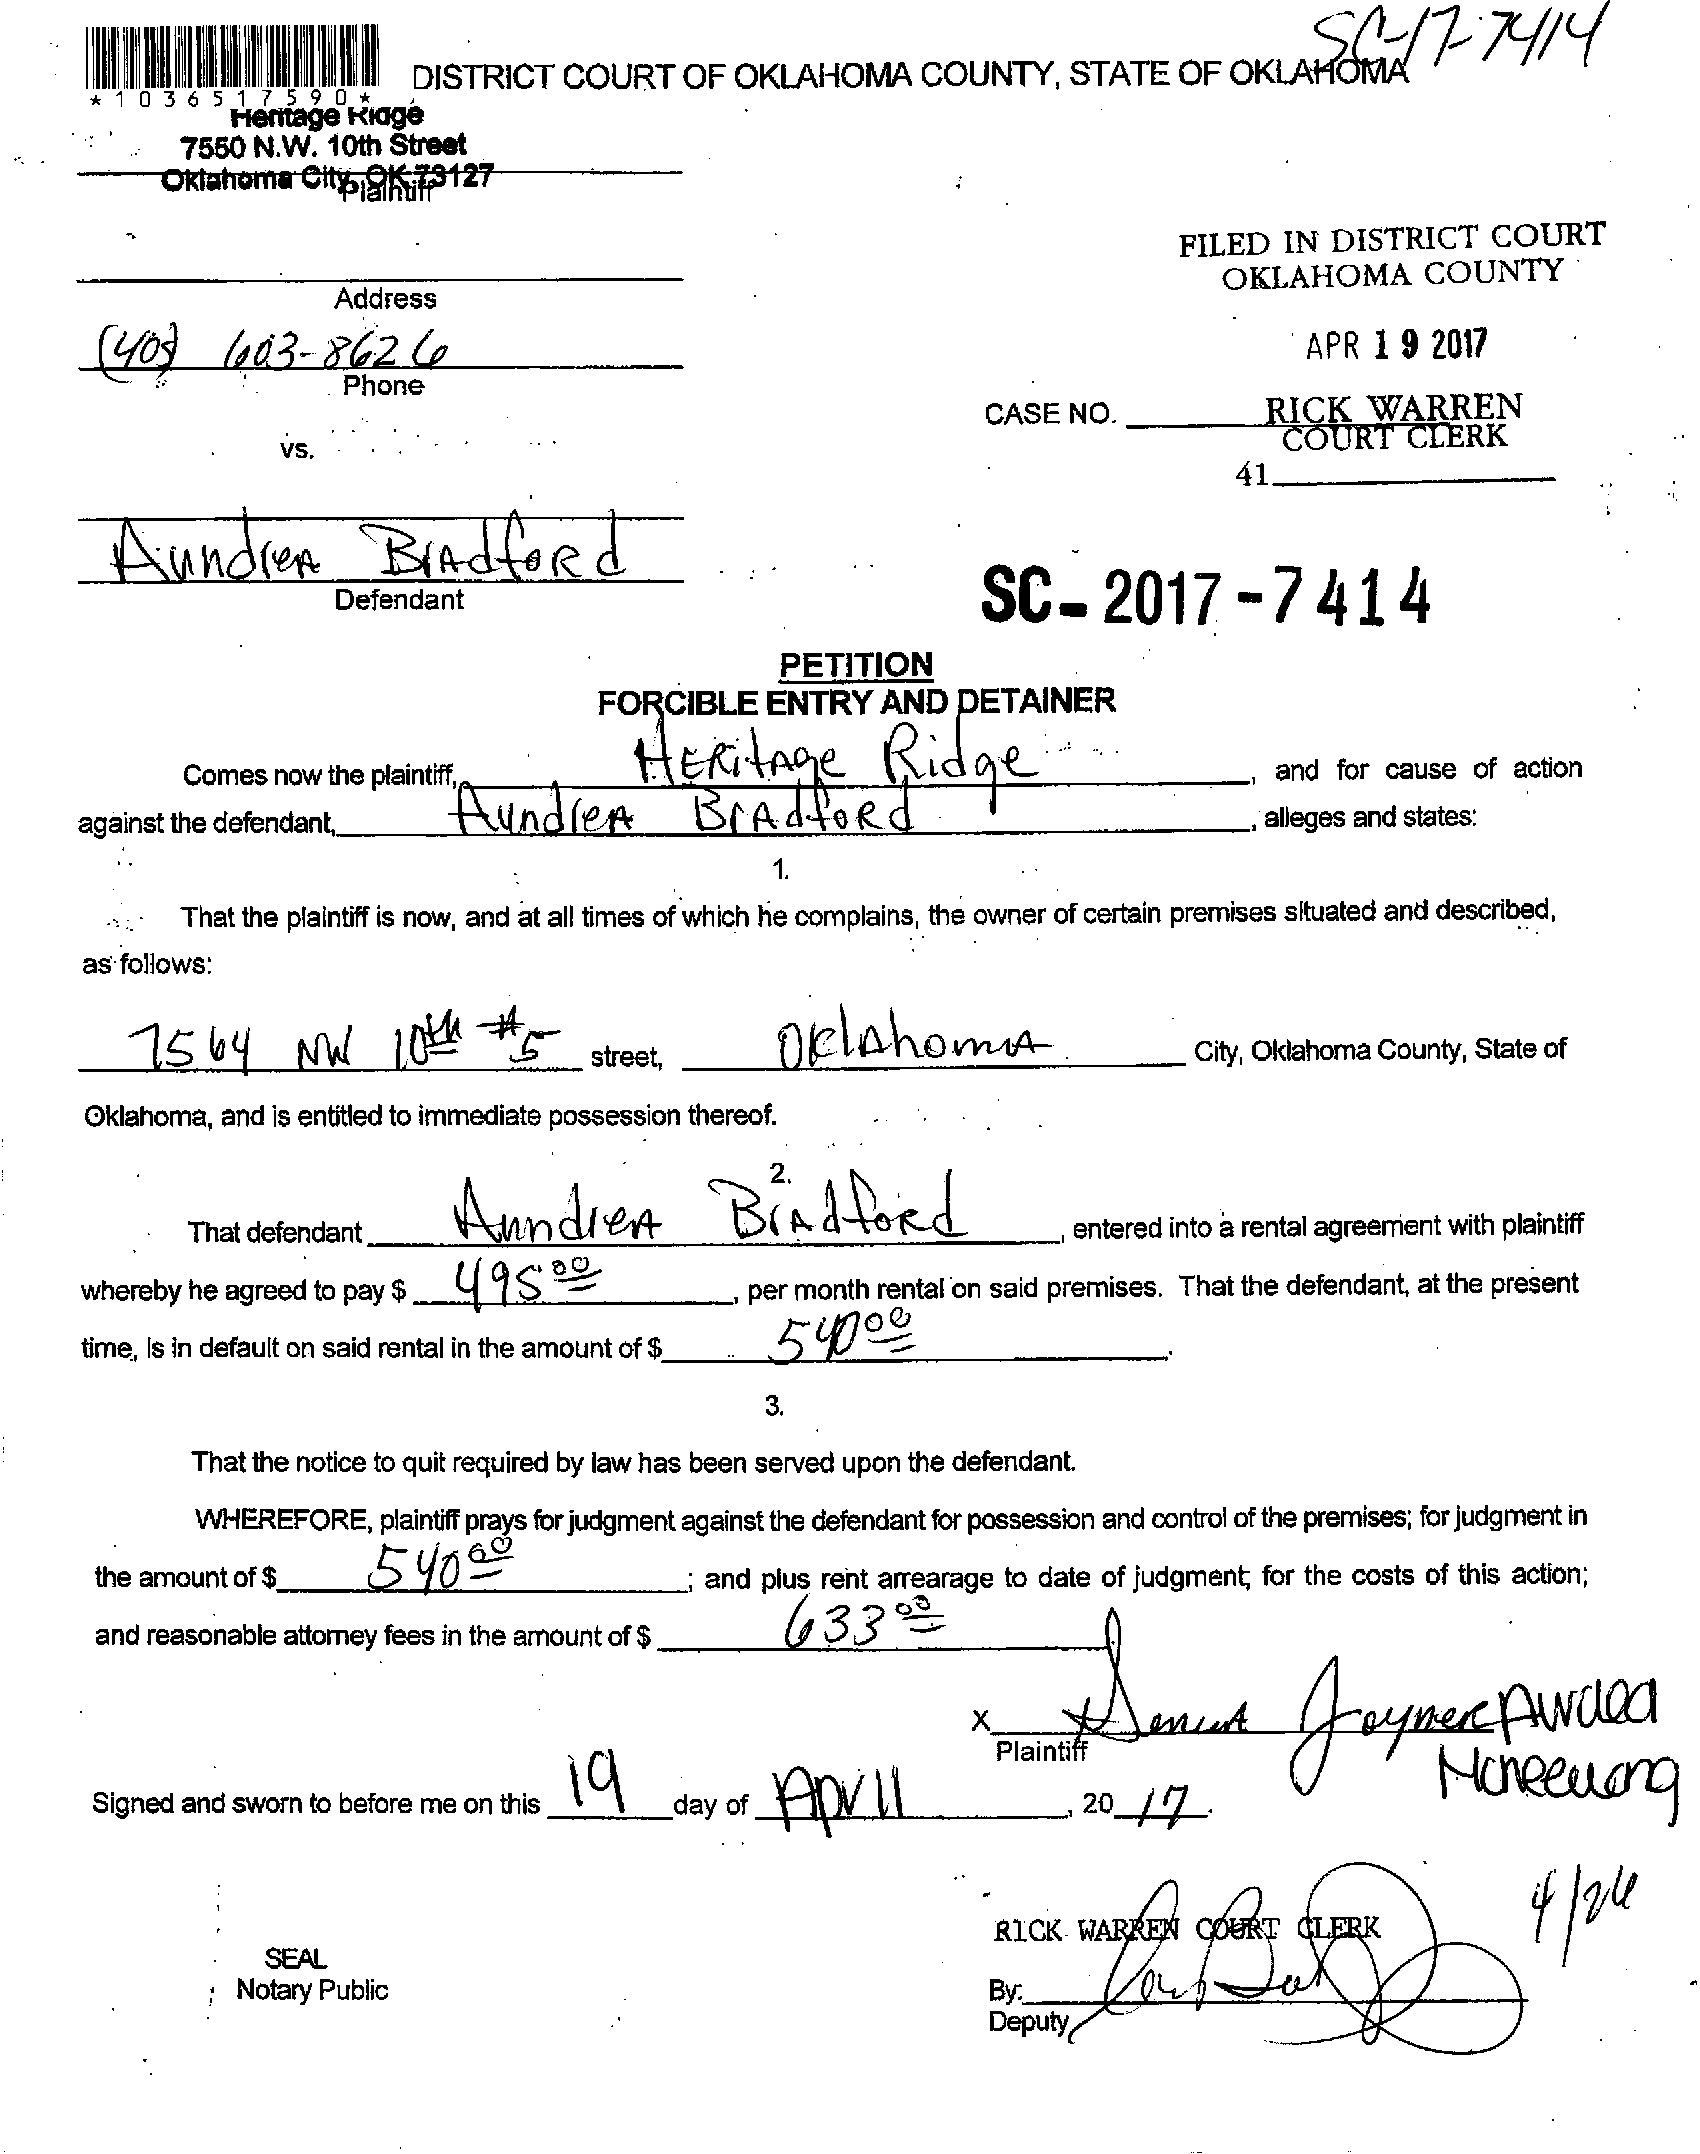 SC-17-7414
DISTRICT COURT OF OKLAHOMA COUNTY, STATE OF OKLAHOMA
*1036517590*
Heritage Ridge
7550 N.W. 10th Street
Oklahoma City, OK 73127
Plaintiff
FILED IN DISTRICT COURT
OKLAHOMA COUNTY
Address
APR 19 2017
(405) 603-8626
Phone
CASE NO. RICK WARREN
COURT CLERK
vs.
41
Aundrea Bradford
Defendant
SC-2017-7414
PETITION
FORCIBLE ENTRY AND DETAINER
Comes now the plaintiff, Heritage Ridge, and for cause of action
against the defendant, Aundrea Bradford, alleges and states:
1.
That the plaintiff is now, and at all times of which he complains, the owner of certain premises situated and described,
as follows:
7564 NW 10th #5 street, Oklahoma City, Oklahoma County, State of
Oklahoma, and is entitled to immediate possession thereof.
2.
That defendant Aundrea Bradford, entered into a rental agreement with plaintiff
whereby he agreed to pay $ 495.00, per month rental on said premises. That the defendant, at the present
time, is in default on said rental in the amount of $ 540.00.
3.
That the notice to quit required by law has been served upon the defendant.
WHEREFORE, plaintiff prays for judgment against the defendant for possession and control of the premises; for judgment in
the amount of $ 540.00; and plus rent arrearage to date of judgment; for the costs of this action;
and reasonable attorney fees in the amount of $ 633.00
X Joyner
Plaintiff
Signed and sworn to before me on this 19 day of April, 2017.
4/26
RICK WARREN COURT CLERK
SEAL
Notary Public
By:
Deputy